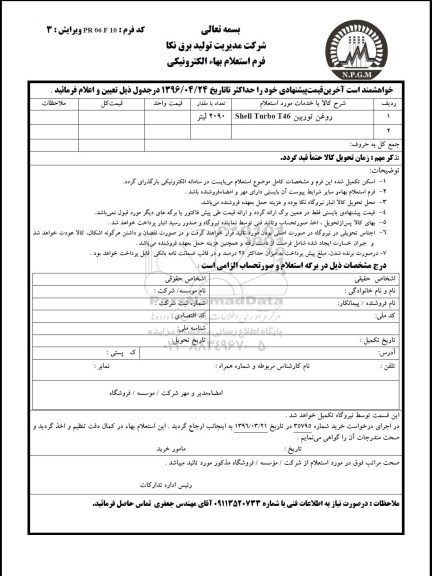 بسمه تعالی
شرکت مدیریت تولید برق نکا
فرم استعلام بهاء الکترونیکی
کد فرم : PR 06 F 10 ویرایش : 3
N.P.G.M
خواهشمند است آخرین قیمت پیشنهادی خود را حداکثر تا تاریخ 1396/04/24 در جدول ذیل تعیین و اعلام فرمائید .
ردیف شرح کالا یا خدمات مورد استعلام تعداد یا مقدار قیمت واحد قیمت کل ملاحظات
1 روغن توربین Shell Turbo T46 2090 لیتر
2
جمع کل به حروف:
تذکر مهم : زمان تحویل کالا حتماً قید گردد.
توضیحات:
1- اسکن تکمیل شده این فرم و مشخصات کامل موضوع استعلام می‌بایست در سامانه الکترونیکی بارگذاری گردد.
2- فرم استعلام بهاءو سایر شرایط پیوست آن بایستی دارای مهر و امضاءفروشنده باشد .
3- محل تحویل کالا انبار نیروگاه نکا بوده و هزینه حمل بعهده فروشنده می‌باشد.
4- قیمت پیشنهادی بایستی فقط در همین برگه ارائه گردد و ارائه قیمت طی پیش فاکتور یا برگه های دیگر مورد قبول نمی‌باشد.
5- بهای کالا پس‌ازتحویل ، اخذ صورتحساب وتائید فنی توسط نماینده نیروگاه و صدور رسید انبار پرداخت خواهد شد .
6- اجناس تحویلی در نیروگاه در صورت اصلی بودن مورد تائید قرار خواهند گرفت و در صورت نقصان و داشتن هرگونه اشکال، کالا عودت خواهد شد
و جبران خسارت ایجاد شده شامل فرصت از دست رفته و همچنین هزینه حمل بعهده فروشنده می‌باشد .
7- درصورت برنده شدن، مبلغ پیش پرداخت به میزان حداکثر 25 درصد و در قالب ضمانت نامه بانکی قابل پرداخت خواهد بود .
درج مشخصات ذیل در برگه استعلام و صورتحساب الزامی است :
اشخاص حقیقی اشخاص حقوقی
نام و نام خانوادگی : نام موسسه/ شرکت :
نام فروشنده / پیمانکار: شماره ثبت شرکت :
کد ملی: کد اقتصادی :
شناسه ملی
تاریخ تکمیل : تاریخ تحویل:
آدرس: ک پستی :
تلفن : نام کارشناس مربوطه و شماره همراه : نمابر :
امضاءمدیر و مهر شرکت / موسسه / فروشگاه
این قسمت توسط نیروگاه تکمیل خواهد شد .
در اجرای درخواست خرید شماره 35795 در تاریخ 1396/03/21 به اینجانب ارجاع گردید . این استعلام بهاء در کمال دقت تنظیم و اخذ گردید و
صحت مندرجات آن را گواهی می‌نمایم .
تاریخ : مامور خرید
صحت مراتب فوق در مورد استعلام از شرکت / مؤسسه / فروشگاه مذکور مورد تائید میباشد .
رئیس اداره تدارکات
ملاحظات : درصورت نیاز به اطلاعات فنی با شماره 09113520733 آقای مهندس جعفری تماس حاصل فرمائید.